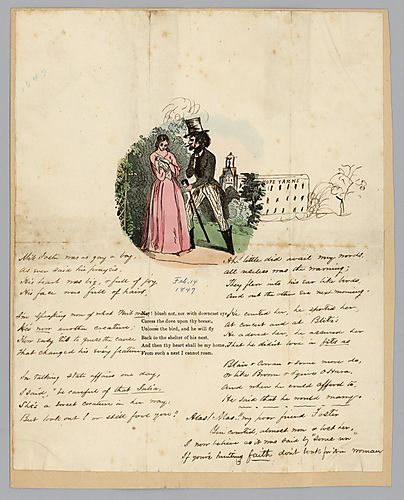 1849
ROPE YARNS
Feb. 14
1849
Nay! blush not, nor with downcast eye,
Caress the dove upon thy breast,
Unloose the bird, and he will fly
Back to the shelter of his nest.
And then thy heart shall be my home,
From such a nest I cannot roam.
was as gay a boy
As ever said his prayers,
His heart was big, & full of joy
His face was full of hairs
I'm speaking now of what
He's now another creature;
the cause
That changed his every feature
I'm talking state affairs one day,
I said, "be careful of that Julia,
She's a sweet creature in her way,
But look out! or she'll fool you?
Ah! little did avail my words,
all useless was the warning;
They flew into his ear like birds,
And out the other ear next morning.
He courted her, he sported her,
At concert and at
He adored her, he adorned her
That he didn't love in
Blair & Cowan & some more do,
or like Broom &
And when he could afford to,
He said that he would marry.
Alas! Alas! my poor friend Foster
You courted, almost won & lost her.
I now believe as it was said by some one
If you're hunting faith don't look for't in woman